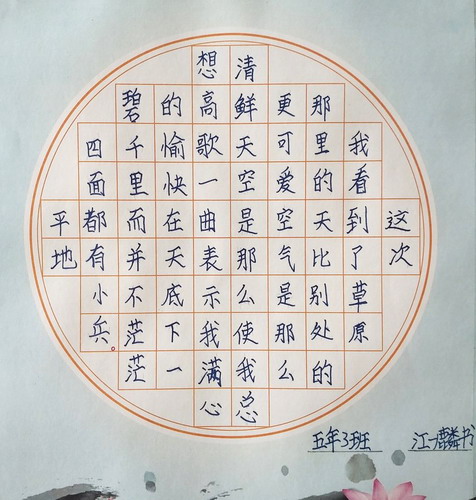 这次
我看到了草原
那里的天比别处的
更可爱空气是那么
清鲜天空是那么使我总
想高歌一曲表示我满心
的愉快在天底下一
碧千里而并不茫茫
四面都有小兵。
平地
五年3班 江一麟书